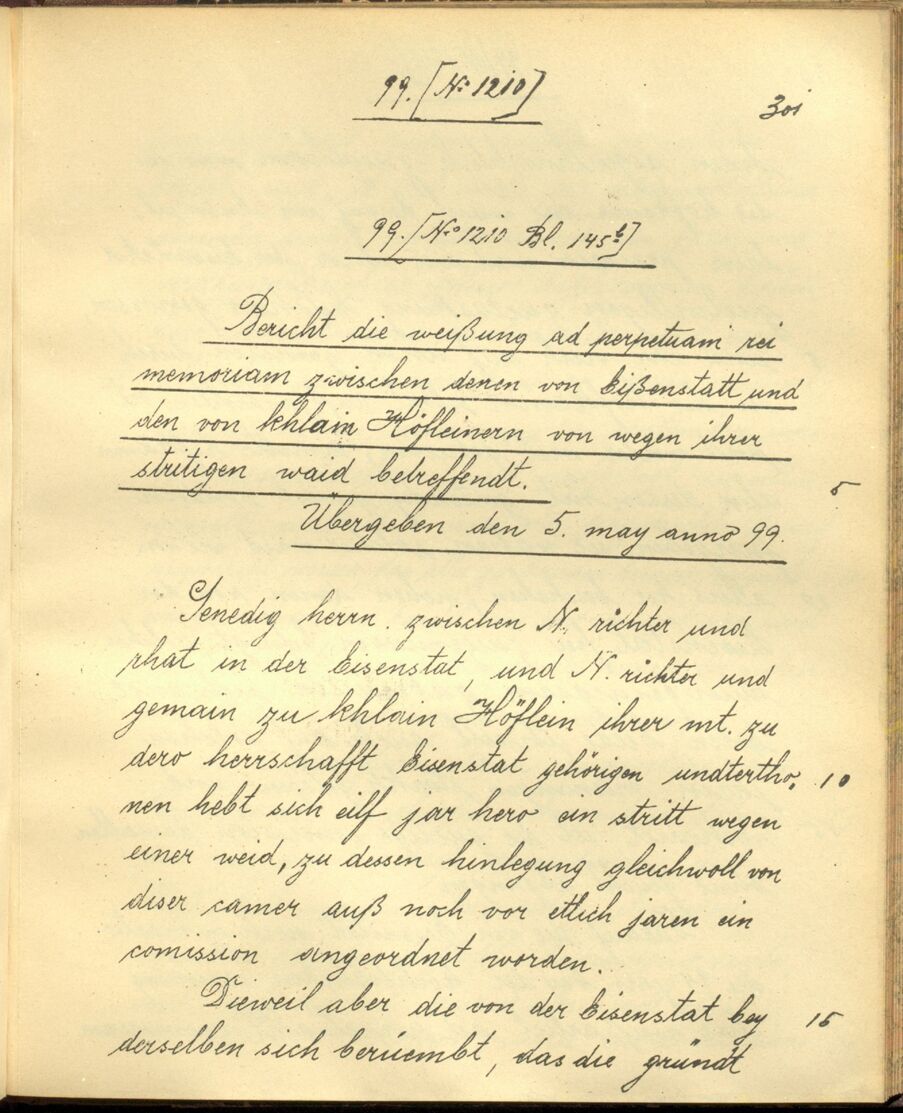 99. [No 1210]
301
99. [No 1210 Bl. 145b]
Bericht die weißung ad perpetuam rei
memoriam zwischen denen von Eißenstatt und
den von khlain Höfleinern von wegen ihrer
stritigen waid betreffendt.
5
Übergeben den 5. may anno 99.
Genedig herrn. zwischen N. richter und
rhat in der Eisenstat, und N. richter und
gemain zu khlain Höflein ihrer mt. zu
dero herrschafft Eisenstat gehörigen undtertho-
10
nen hebt sich eilf jar hero ein stritt wegen
einer weid, zu dessen hinlegung gleichwoll von
diser camer auß noch vor etlich jaren ein
comission angeordnet worden.
Dieweil aber die von der Eisenstat bey
15
derselben sich berüembt, das die gründt